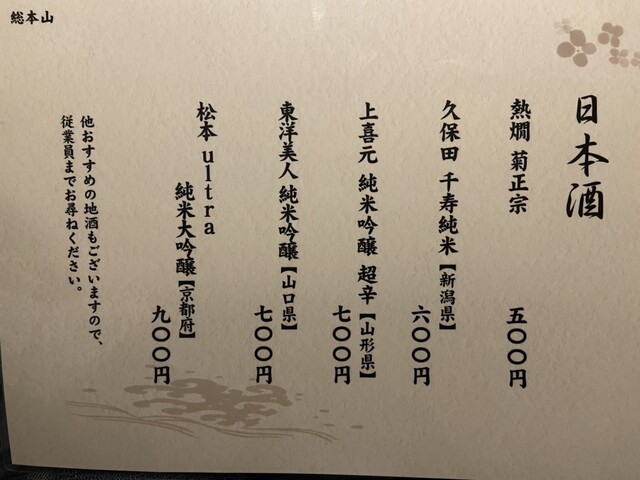 総本山
日本酒
熱燗 菊正宗 五〇〇円
久保田 千寿純米【新潟県】 六〇〇円
上喜元 純米吟醸 超辛【山形県】 七〇〇円
東洋美人 純米吟醸【山口県】 七〇〇円
松本 ultra
純米大吟醸【京都府】 九〇〇円
他おすすめの地酒もございますので、
従業員までお尋ねください。